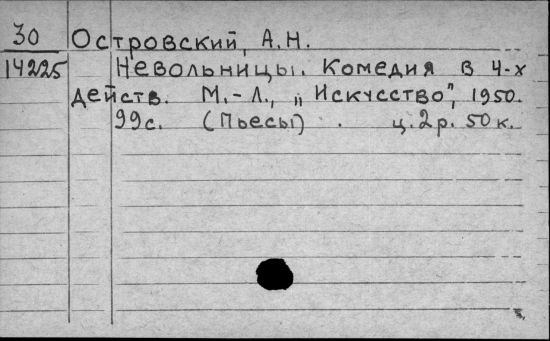 30 Островский, А.Н.
14225 Невольницы. Комедия в 4-х
действ. М.-Л., „Искусство", 1950.
99с. (Пьесы) . ц. 2р. 50к.